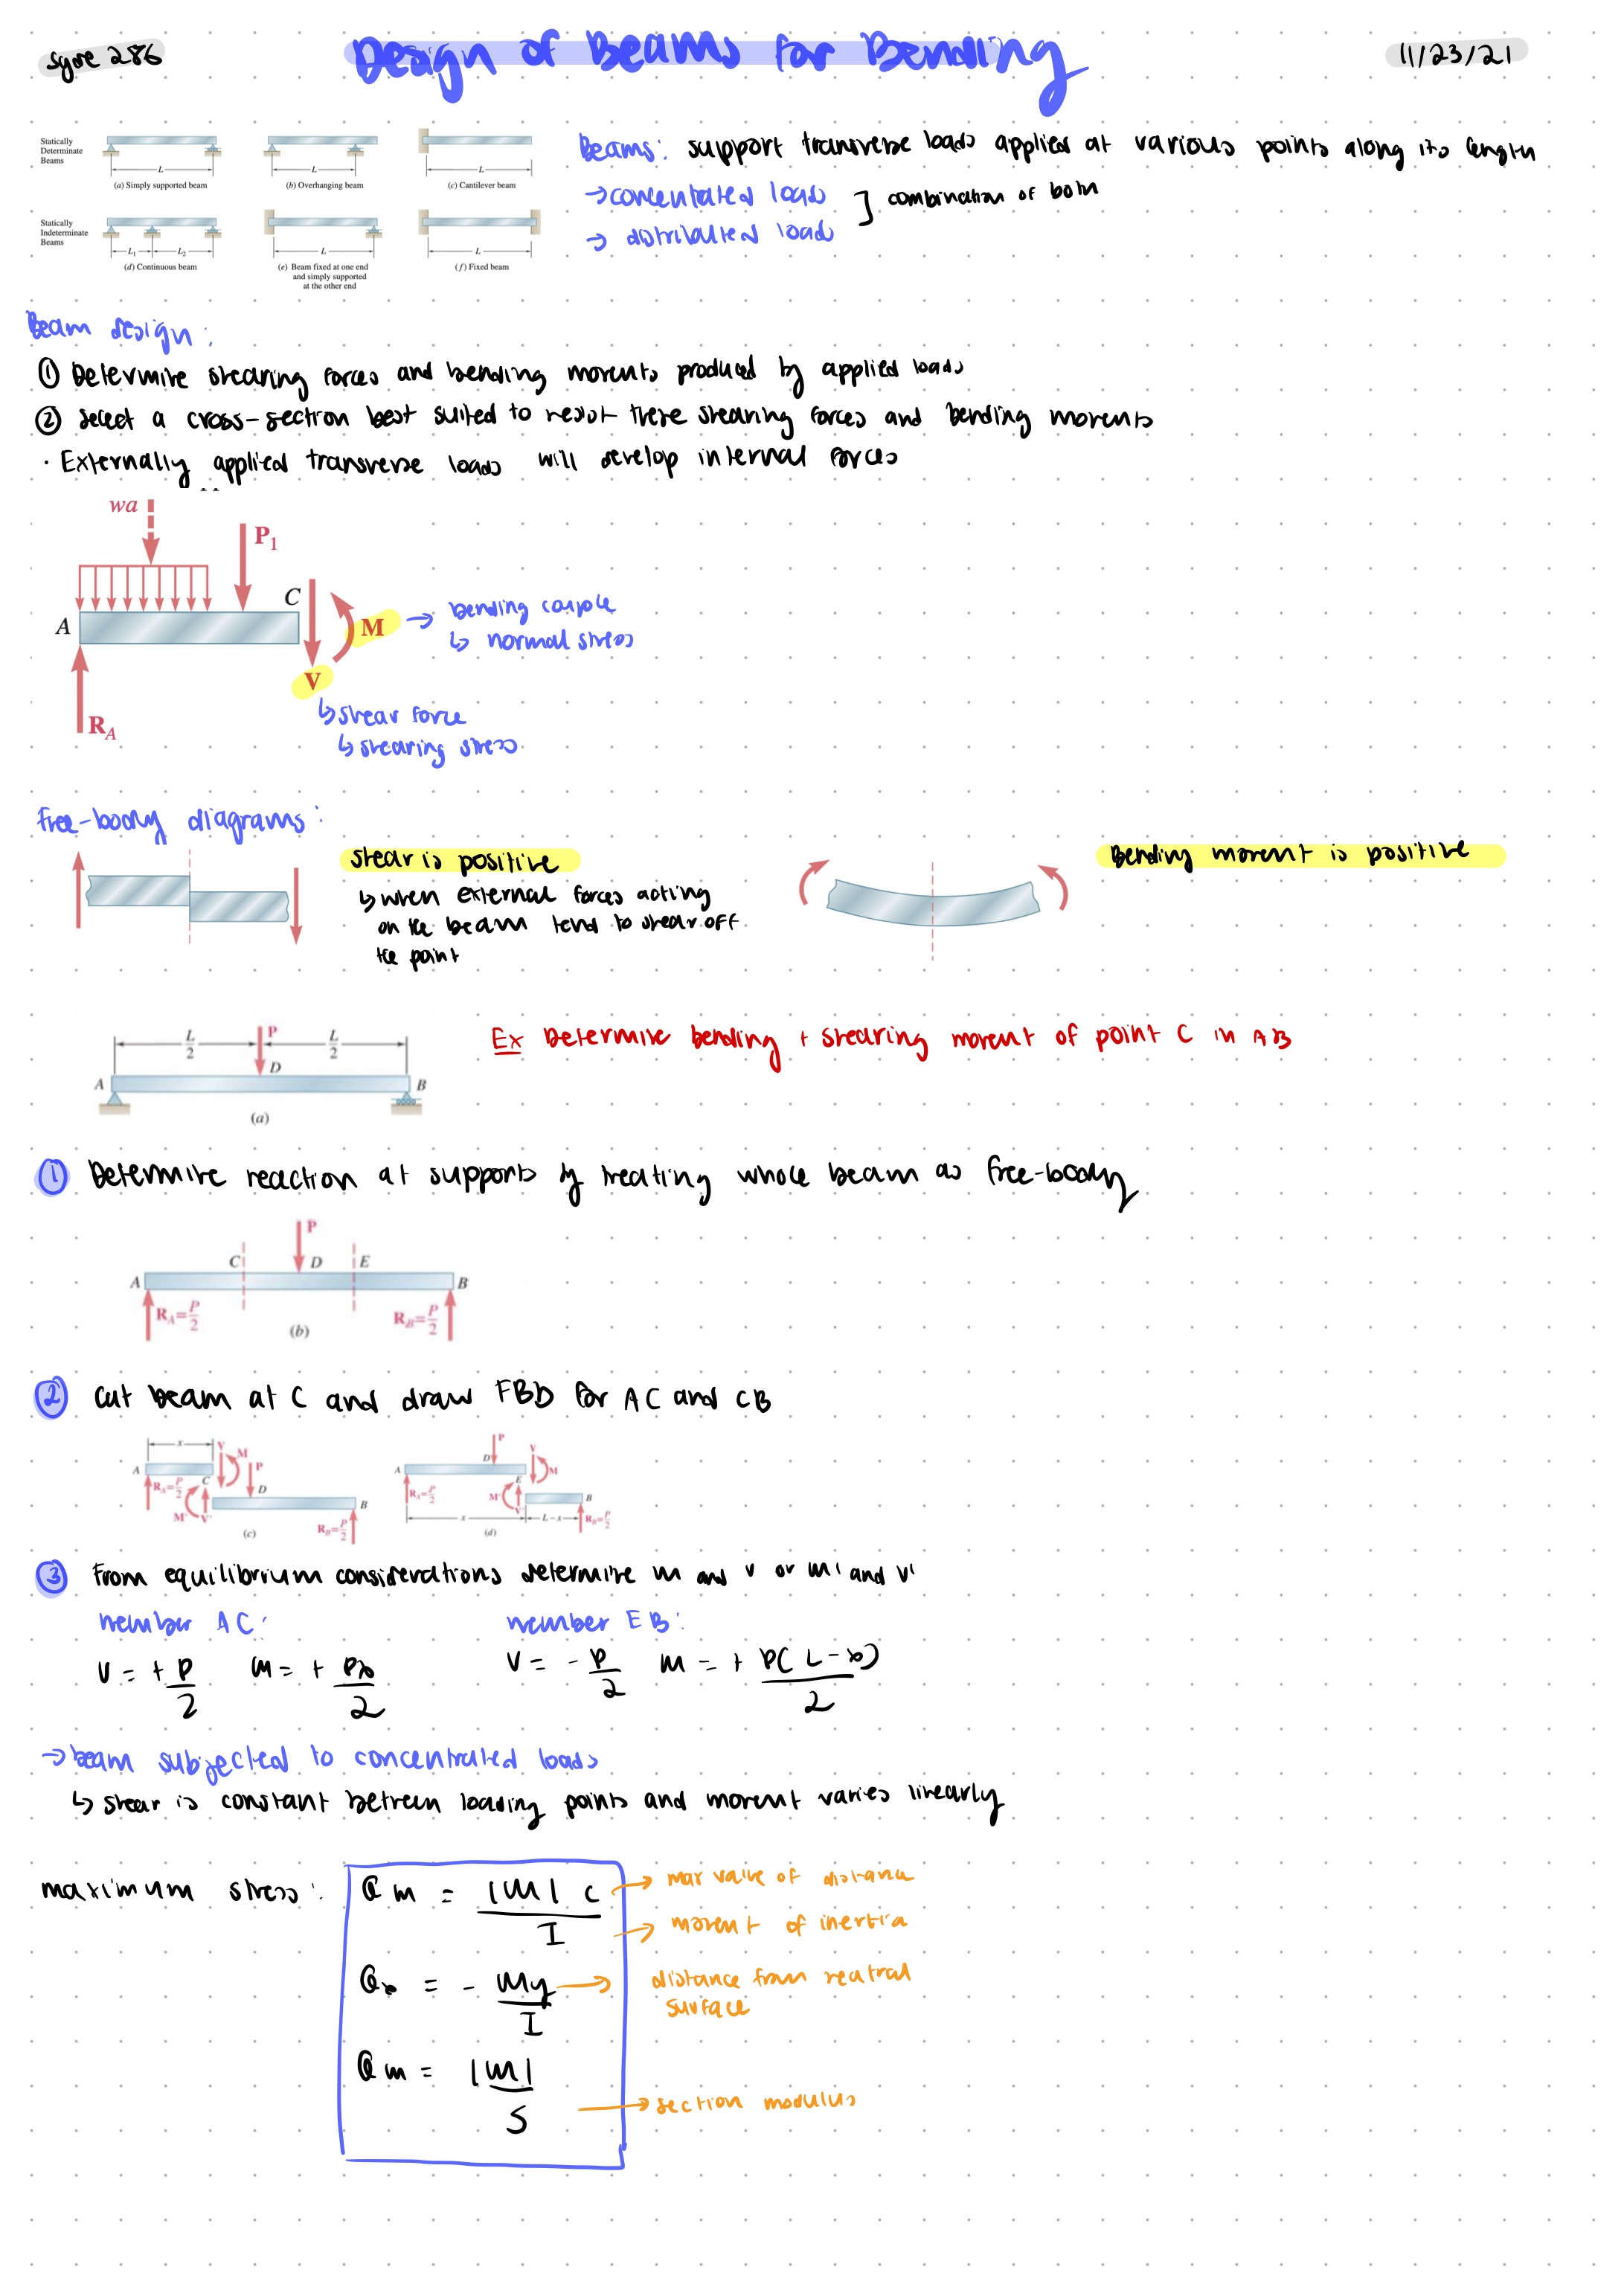 syde 286
Design of Beams for Bending
11/23/21
Statically
Determinate
Beams
L
(a) Simply supported beam
L
(b) Overhanging beam
L
(c) Cantilever beam
Statically
Indeterminate
Beams
L1 L2
(d) Continuous beam
L
(e) Beam fixed at one end
and simply supported
at the other end
L
(f) Fixed beam
Beams: support transverse loads applied at various points along its length
→ concentrated loads
→ distributed loads
] combination of both
Beam design:
① Determine shearing forces and bending moments produced by applied loads
② select a cross-section best suited to resist these shearing forces and bending moments
· Externally applied transverse loads will develop internal forces
wa
P1
C
A
M → bending couple
↳ normal stress
V
↳ shear force
↳ shearing stress
RA
free-body diagrams:
shear is positive
↳ when external forces acting
on the beam tend to shear off
the point
Bending moment is positive
L/2 P L/2
D
A B
(a)
Ex Determine bending + shearing moment of point C in AB
① Determine reaction at supports by treating whole beam as free-body
P
C D E
A B
RA = P/2 RB = P/2
(b)
② cut beam at C and draw FBD for AC and CB
x V M P
A C D
RA = P/2
M' V' B
RB = P/2
(c)
P V
D M
A E
RA = P/2 M' V' B
x L-x RB = P/2
(d)
③ From equilibrium considerations determine M and V or M' and V'
member AC: member EB:
V = + P/2 M = + Px/2 V = - P/2 M = + P(L-x)/2
→ beam subjected to concentrated loads
↳ shear is constant between loading points and moment varies linearly
maximum stress: σm = |M| c / I
→ max value of distance
→ moment of inertia
σx = - My / I → distance from neutral
surface
σm = |M| / S
→ section modulus